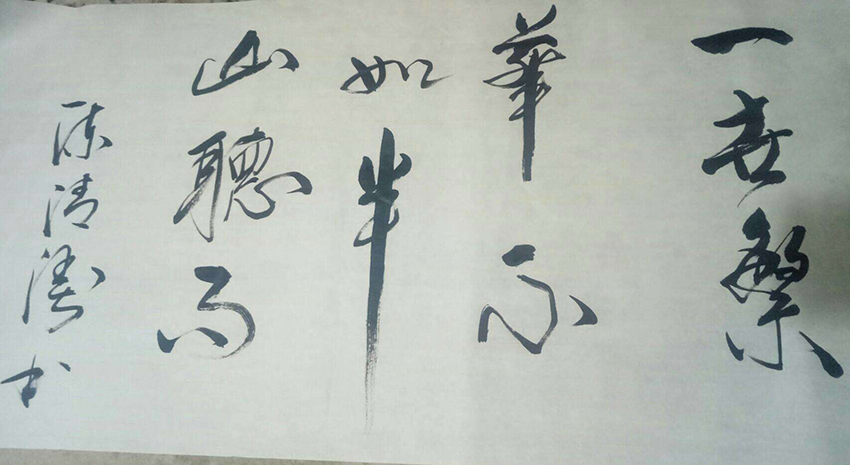 一世繁
華不
如半
山聽雨
陈清濤书